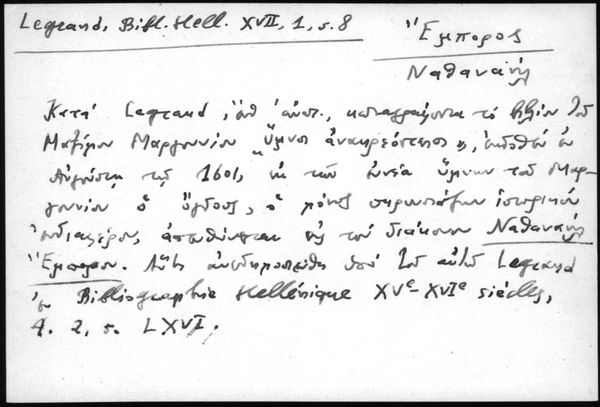 Legrand, Bibl. Hell. XVII, 1, s. 8
Ἔμπορος
Ναθαναήλ
Κατά Legrand, ἔνθ' ἀνωτ., καταγράφοντα τό βιβλίον τοῦ
Μαξίμου Μαργουνίου "Ὕμνοι ἀνακρεόντειοι", ἐκδοθέν ἐν
Αὐγούστῃ τῷ 1601, ἐκ τῶν ἐννέα ὕμνων τοῦ Μαρ-
γουνίου ὁ ὄγδοος, ὁ μόνος παρουσιάζων ἱστορικόν
ἐνδιαφέρον, ἀπευθύνεται εἰς τόν διάκονον Ναθαναήλ
Ἔμπορον. ἀνεδημοσιεύθη ὑπό τοῦ αὐτοῦ Legrand
ἐν Bibliographie Hellénique XVe-XVIe siècles,
2, s. LXVI.